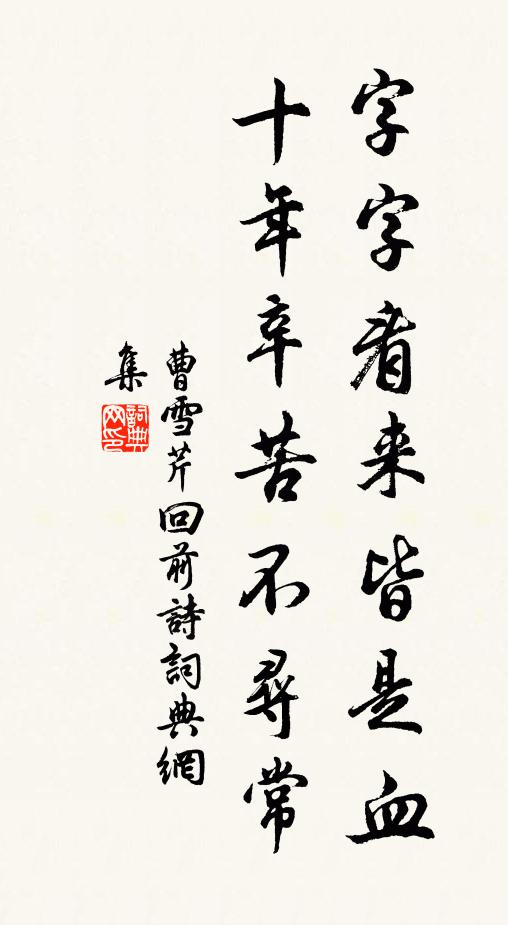 字字看来皆是血
十年辛苦不尋常
曹雪芹回前詩詞典網
集
詞典
网印